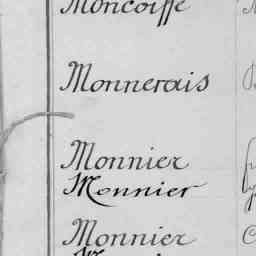 Moncoiffé
Monnerais
Monnier
Monnier
Monnier